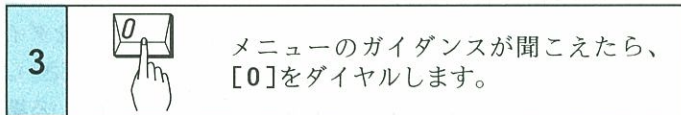 3
0
メニューのガイダンスが聞こえたら、
[0]をダイヤルします。